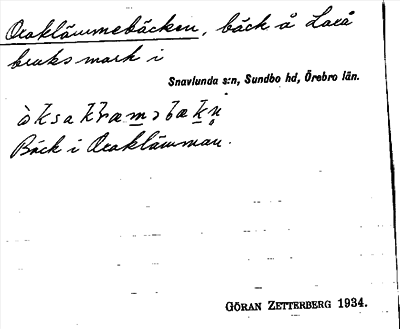 Oxaklämmebäcken, bäck å Laxå
bruks mark i
Snavlunda s:n, Sundbo hd, Örebro län.
Bäck i Oxaklämman.
GÖRAN ZETTERBERG 1934.